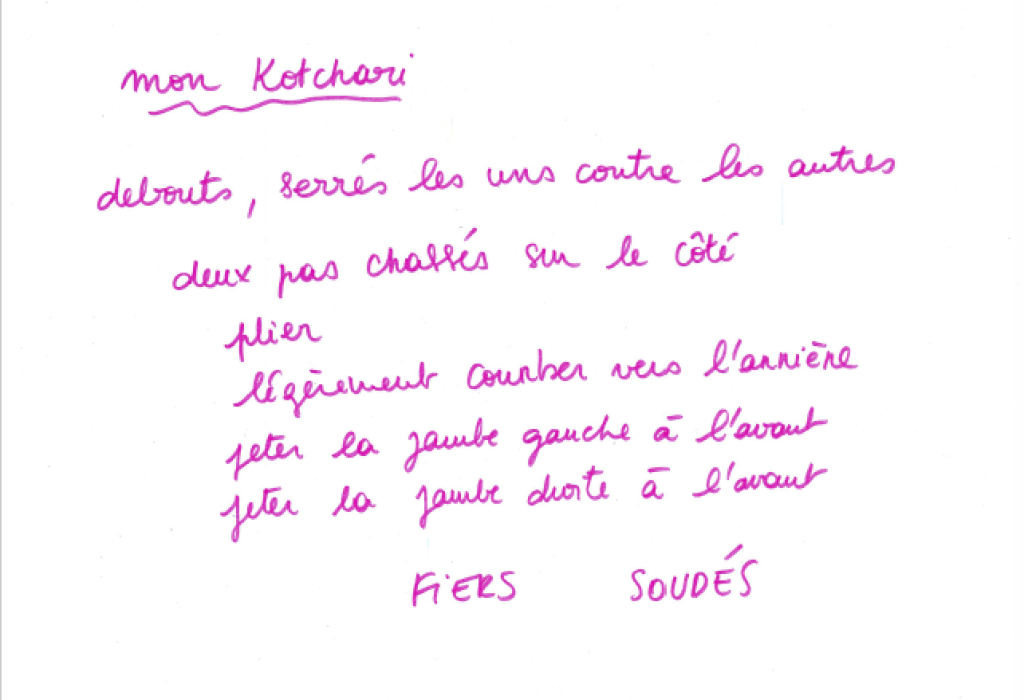 mon Kotchari
debouts, serrés les uns contre les autres
deux pas chassés sur le côté
plier
légèrement courber vers l'arrière
jeter la jambe gauche à l'avant
jeter la jambe droite à l'avant
FiERS SOUDÉS